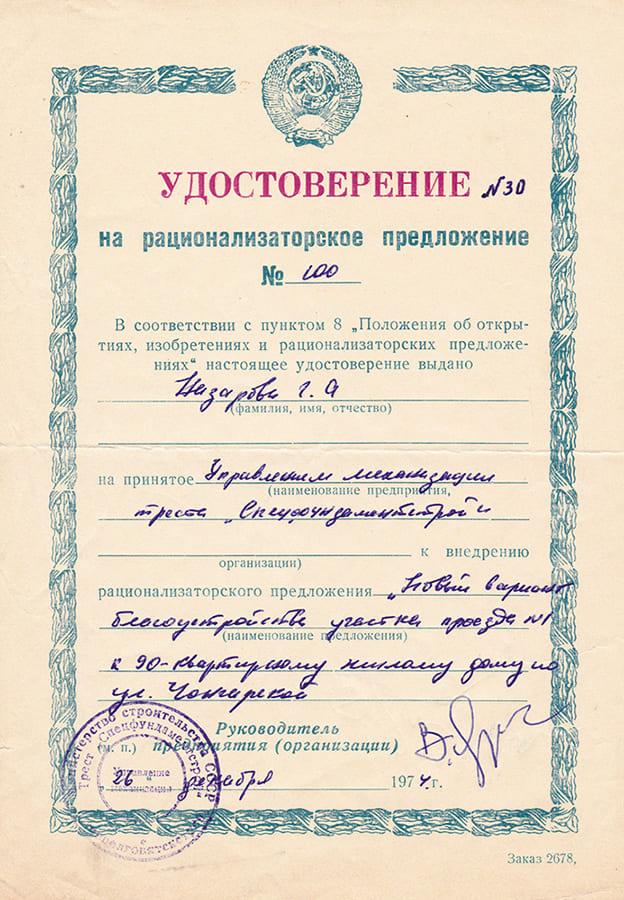 УДОСТОВЕРЕНИЕ №30
на рационализаторское предложение
№ 100
В соответствии с пунктом 8 „Положения об откры-
тиях, изобретениях и рационализаторских предложе-
ниях“ настоящее удостоверение выдано
Г. А
(фамилия, имя, отчество)
на принятое Управлением механизации
(наименование предприятия,
треста „Спецфундаментстрой“
к внедрению
организации)
рационализаторского предложения „Новый вариант
благоустройства участка проезда №1
(наименование предложения)
к 90-квартирному жилому дому по
ул.
Руководитель
(м. п.) предприятия (организации)
26 декабря 1974.г.
Министерство строительства СССР
Трест „Спецфундаментстрой“
Управление
механизации
Заказ 2678,